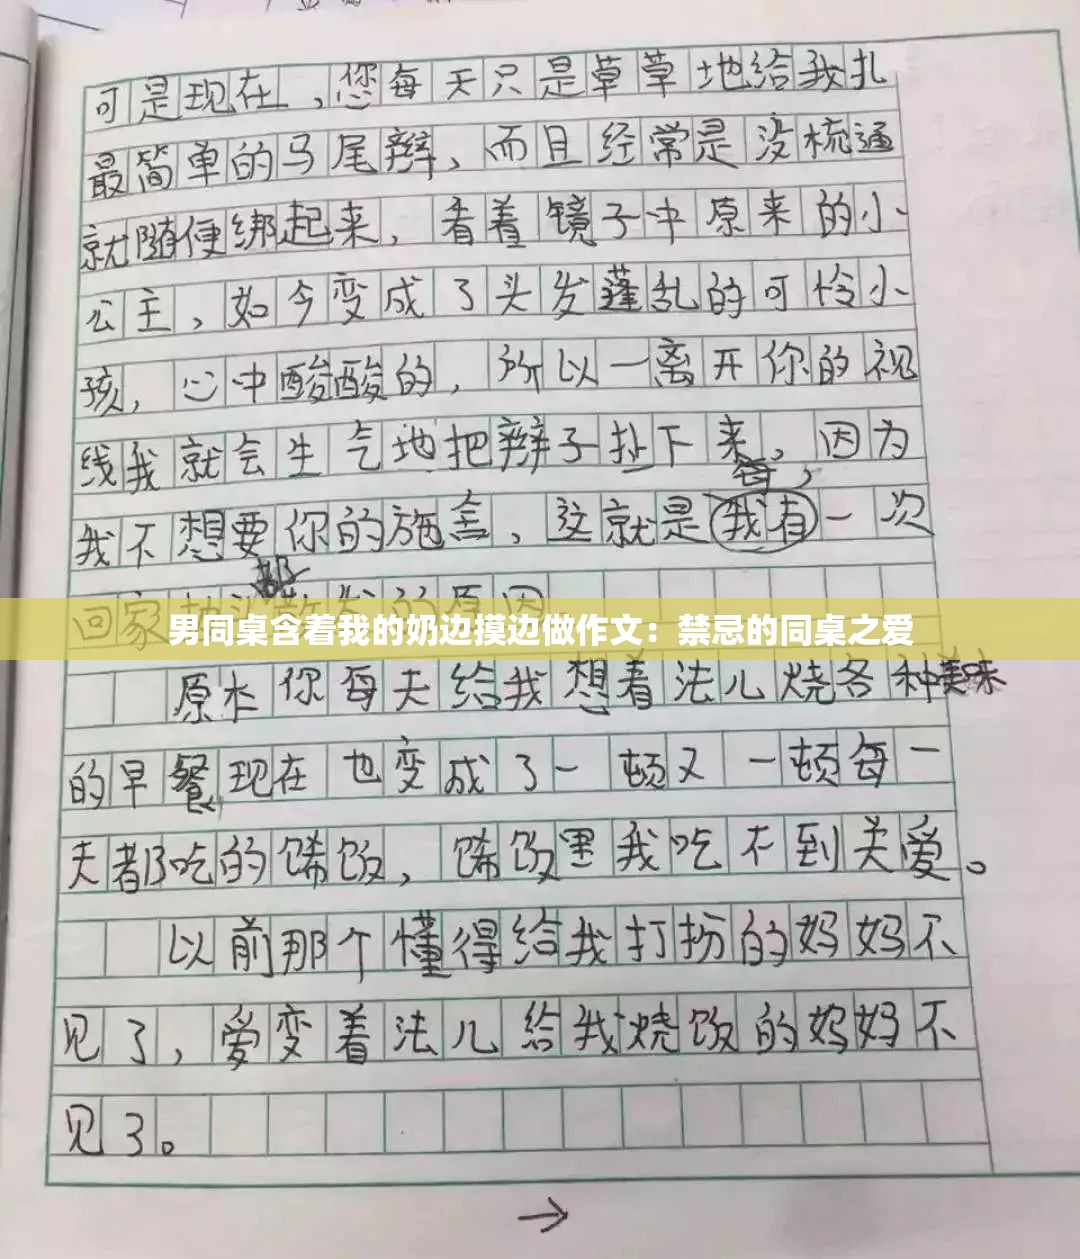 可是现在，您每天只是草草地给我扎
最简单的马尾辫，而且经常是没梳通
就随便绑起来，看着镜子中原来的小
公主，如今变成了头发蓬乱的可怜小
孩，心中酸酸的，所以一离开你的视
线我就会生气地把辫子扯下来，因为
我不想要你的施舍，这就是我有每一次
回家
原本你每天给我想着法儿烧各种美味
的早餐现在也变成了一顿又一顿每一
天都吃的馋饭，馋饭里我吃不到关爱。
以前那个懂得给我打扮的妈妈不
见了，爱变着法儿给我烧饭的妈妈不
见了。
→